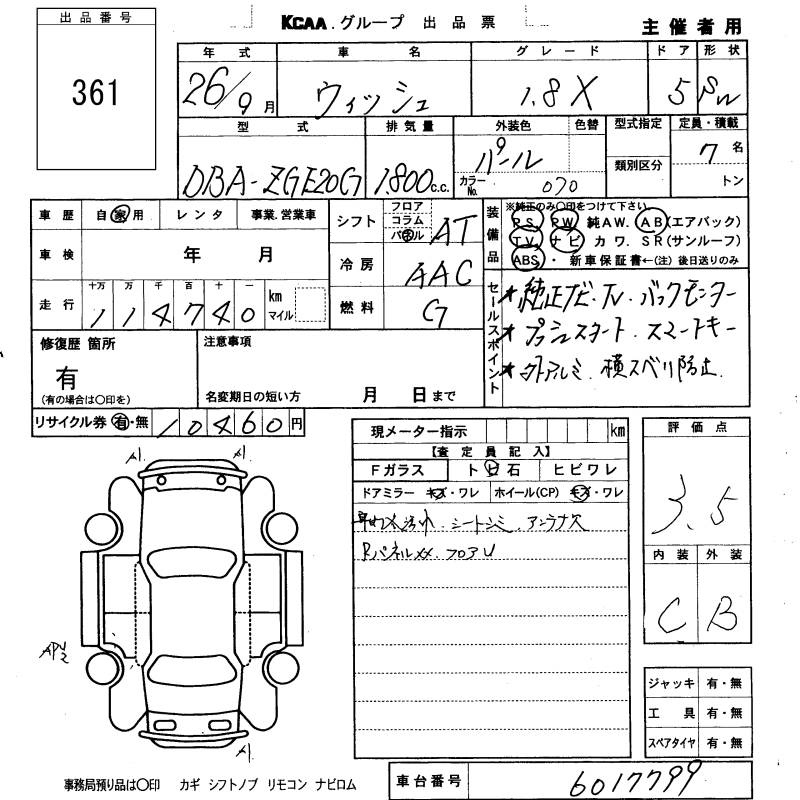 出品番号
361
KCAA.グループ 出品票
主催者用
年式 車名 グレード ドア 形状
26/9月 ウィッシュ 1.8X 5 SW
型式 排気量 外装色 色替 型式指定 定員・積載
DBA-ZGE20G 1,800c.c. パール 7名
カラーNo. 070 類別区分 トン
車歴 自家用 レンタ 事業.営業車
車検 年 月
走行 十万 万 千 百 十 一
114740 km マイル
シフト フロア コラム パネル AT
冷房 AAC
燃料 G
装備品 ※純正のみ〇印をつけて下さい
PS. PW 純AW. AB(エアバック)
TV. ナビ カワ. SR(サンルーフ)
ABS. ・ 新車保証書←(注)後日送りのみ
セールスポイント
★純正ナビ・TV.バックモニター
★プッシュスタート.スマートキー
★外アルミ.横スベリ防止.
修復歴 箇所
有
(有の場合は〇印を)
注意事項
名変期日の短い方 月 日まで
リサイクル券 有・無 10460円
現メーター指示 km
【査定員記入】
Fガラス トビ石 ヒビワレ
ドアミラー キズ・ワレ ホイール(CP) キズ・ワレ
シートシミ.アンテナ欠
Rパネルxx.フロアU
評価点
3.5
内装 外装
C B
A1 A1
APU2
A1
ジャッキ 有・無
工具 有・無
スペアタイヤ 有・無
事務局預り品は〇印 カギ シフトノブ リモコン ナビロム
車台番号 6017799